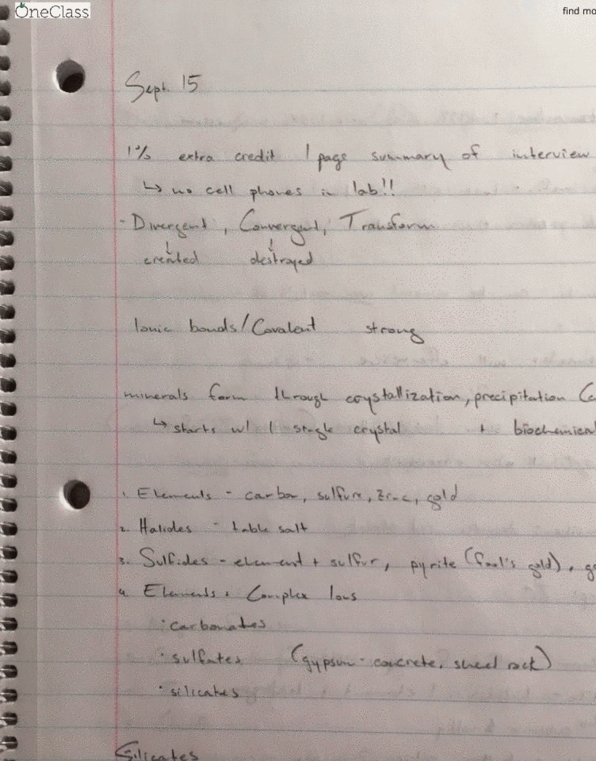 OneClass
find mo
Sept. 15
1% extra credit 1 page summary of interview
↳ no cell phones in lab!!
- Divergent, Convergent, Transform
↓ ↓
created destroyed
Ionic bonds/Covalent strong
minerals form through crystallization, precipitation
↳ starts w/ 1 single crystal + biochemical
1. Elements - carbon, sulfure, zinc, gold
2. Halides - table salt
3. Sulfides - element + sulfur, pyrite (fool's gold), g
4. Elements + Complex Ions
· carbonates
· sulfates (gypsum - concrete, sheet rock)
· silicates
Silicates